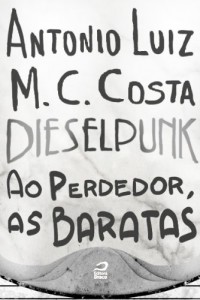 ANTONIO LUIZ
M. C. COSTA
DIESELPUNK
AO PERDEDOR,
AS BARATAS